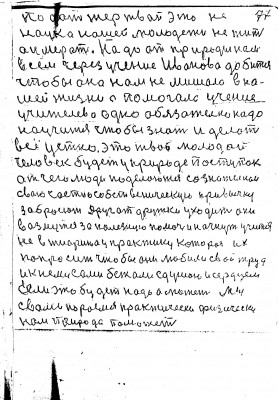 77
по дат жертвай это не
наука нашей молодежи не пит
ан мерат. Надо от природы нам
всем через учение Иванова добится
чтобы она нам не мишала в на-
шей жизни а помогало учение
учителево одно обязательно надо
научится чтобы знат и делат
всё четко, это твой молодой
человек будет у природе поступок
от чего люди поделаются сознателными
свою частнособственическую привычку
забросют друг от дружки уходит они
возмутся за полезную помоч и начнут учится
не в тиорию а у практику которая их
попросит чтобы они любили свой труд
и к нему сами бежали с душою и сердцем
Если это будет надо а может мы
своими порогами практически физически
нам природа поможет